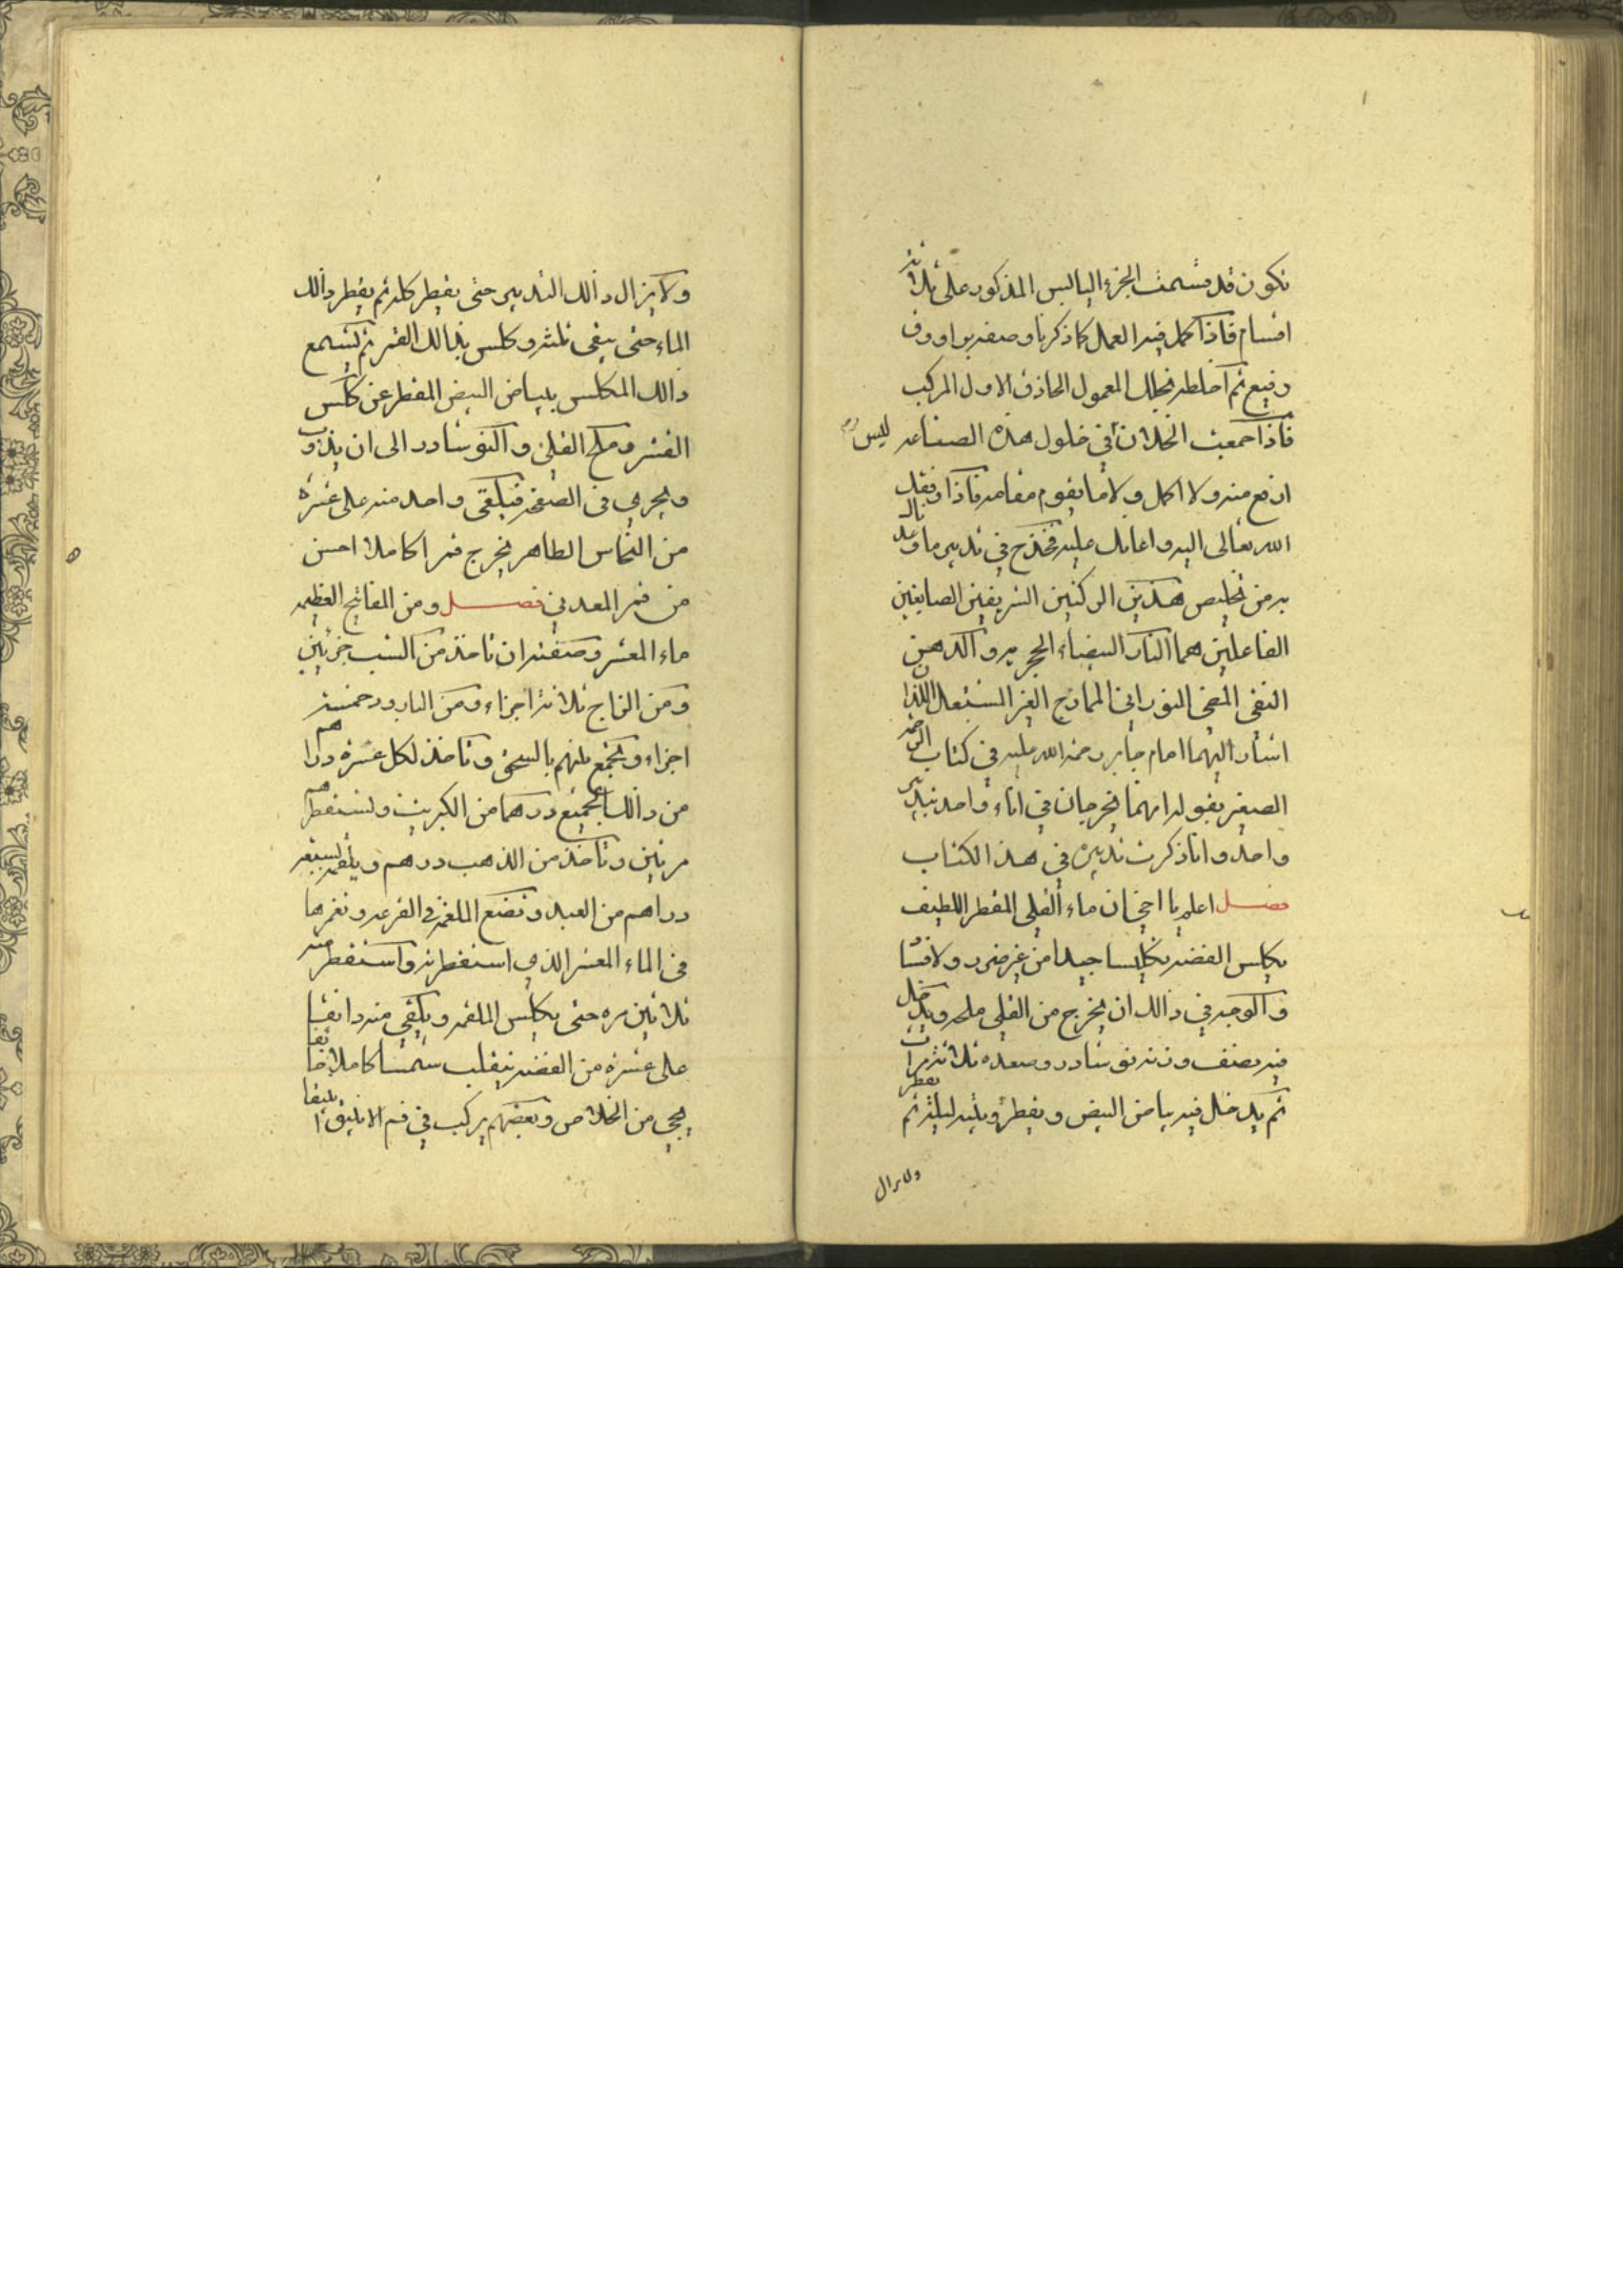 تكون قد قسمت الجزء اليابس المذكور على ثلاثة
اقسام فاذا كمل فيه العمل كما ذكرنا وصفه
ثم اخلطه بخلك المعمول الحاذق الاول المركب
فاذا جمعت الخلان في خلول هذه الصناعه ليس
ارفع منه ولا اكمل ولا ما يقوم مقامه فاذا وفقك
الله تعالى اليه واعانك عليه فخذ في تدبير ما وعدنالك
به من تخليص هذين الركنين الشريفين الصابغين
الفاعلين هما النار البيضاء الحجريه والدهن
النقي المضي النوراني الممازج الغير المشتعل اللذان
اشار اليهما امام جابر رحمة الله عليه في كتاب الرحمة
الصغير بقوله انهما يخرجان في اناء واحد بتدبير
واحد وانا ذكرت تدبيره في هذا الكتاب
فصل اعلم يا اخي ان ماء القلي المقطر اللطيف
يكلس الفضة تكليسا جيدا من غير ضرر ولا فشا
والوجه في ذالك ان يخرج من القلي ملحه ويدخل
فيه نصف وزنه نوشادر وصعده ثلاثة مرات
ثم يدخل فيه بياض البيض ويقطر ويبيه ليلة ثم يقطر
ولا يزال
ولا يزال ذالك التدبير حتى يقطر كله ثم يقطر ذالك
الماء حتى يبقى ثلثه وكلس بذالك القمر ثم يشمع
ذالك المكلس ببياض البيض المقطر عن كلس
القشر وملح القلي والنوشادر الى ان يذوب
ويجري في الصفحه فيلقى واحد منه على عشرة
من النحاس الطاهر يخرج قمرا كاملا احسن
من قمر المعدني فصل ومن المفاتيح العظيمه
ماء المعشر وصفته ان تاخذ من الشب جزئين
ومن الزاج ثلاثة اجزاء ومن البارود خمسة
اجزاء وتجمع بينهم بالسحق وتاخذ لكل عشرة دراهم
من ذالك الجميع درهما من الكبريت وتستقطرهم
مرتين وتاخذ من الذهب درهم ويلغمه بسبعة
دراهم من العبد وتضع الملغمة في القرعه وتغمرها
في الماء المعشر الذي استقطرته واستقطر منه
ثلاثين مره حتى يكلس الملغمه ويلقي منه دانقا
على عشرة من الفضة ينقلب شمسا كاملا خالصا
يجي من الخلاص وبعضهم يركب في فم الانبيق